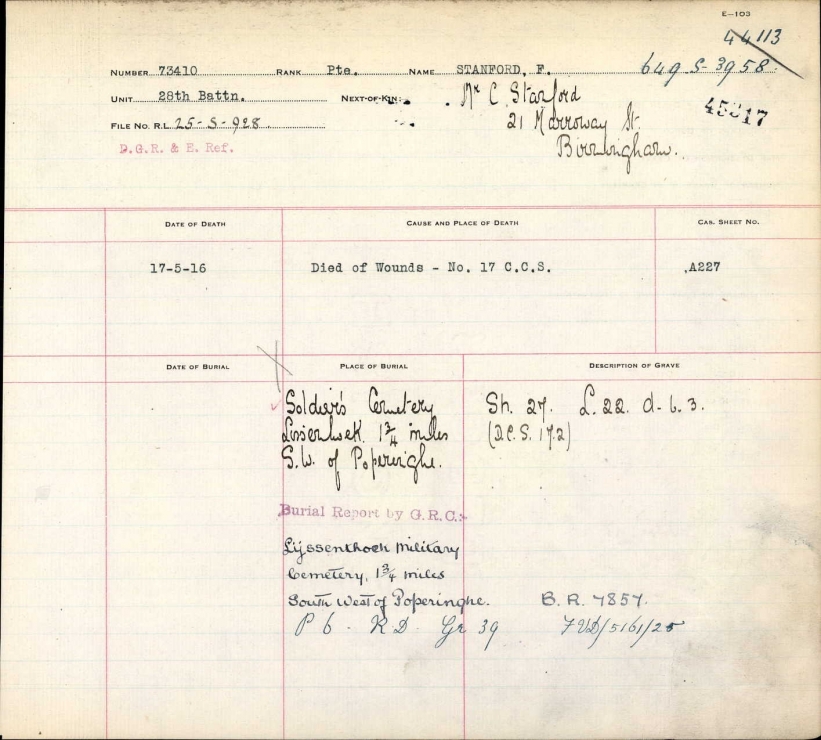 E-103
44113
NUMBER 73410 RANK Pte. NAME STANFORD, F. 649-S-3958.
UNIT 28th Battn. NEXT-OF-KIN:- Mr C. Stanford
45817
21 Marroway St.
FILE NO. R.L. 25-S-928
Birmingham.
D.G.R. & E. Ref.
DATE OF DEATH CAUSE AND PLACE OF DEATH CAS. SHEET NO.
17-5-16 Died of Wounds - No. 17 C.C.S. A227
DATE OF BURIAL PLACE OF BURIAL DESCRIPTION OF GRAVE
Soldier's Cemetery Sh. 27. L. 22. d. 6. 3.
Lissenhoek. 1 3/4 miles (D.C.S. 172)
S.W. of Poperinghe.
Burial Report by G.R.C:-
Lijssenthoek Military
Cemetery, 1 3/4 miles
South West of Poperinghe. B.R. 7857.
P 6. R D. Gr 39